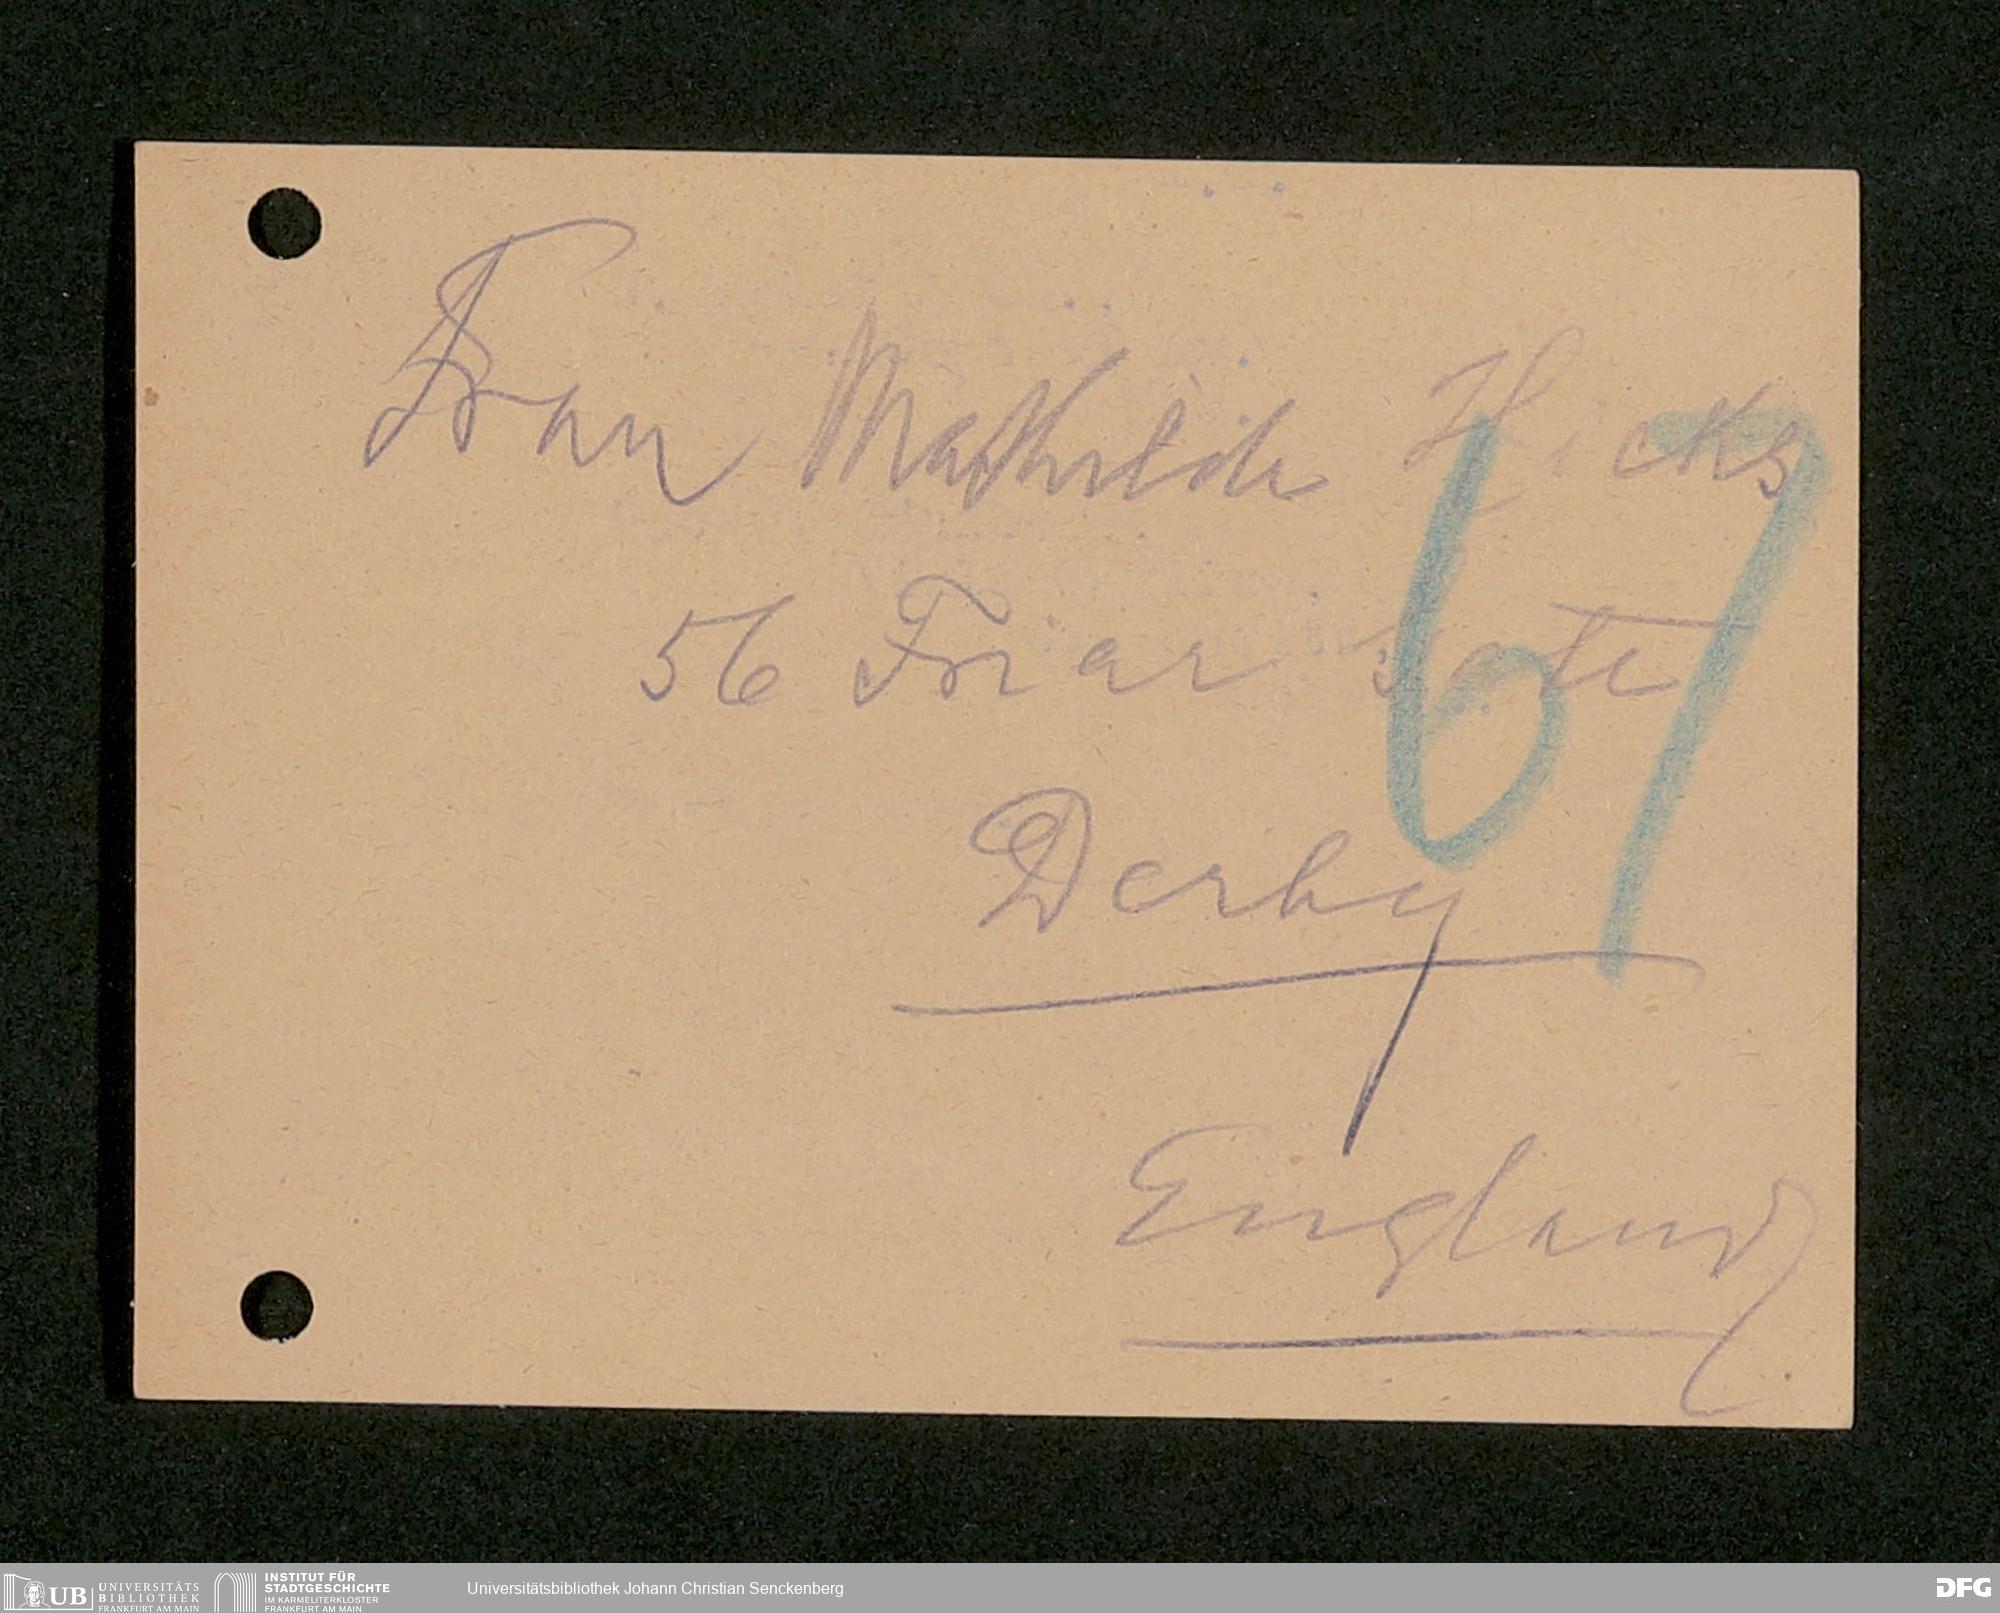 Frau Mathilde Hicks
67
56 Friar gate
Derby
England
UB UNIVERSITÄTS
BIBLIOTHEK
FRANKFURT AM MAIN
INSTITUT FÜR
STADTGESCHICHTE
IM KARMELITERKLOSTER
FRANKFURT AM MAIN
Universitätsbibliothek Johann Christian Senckenberg
DFG